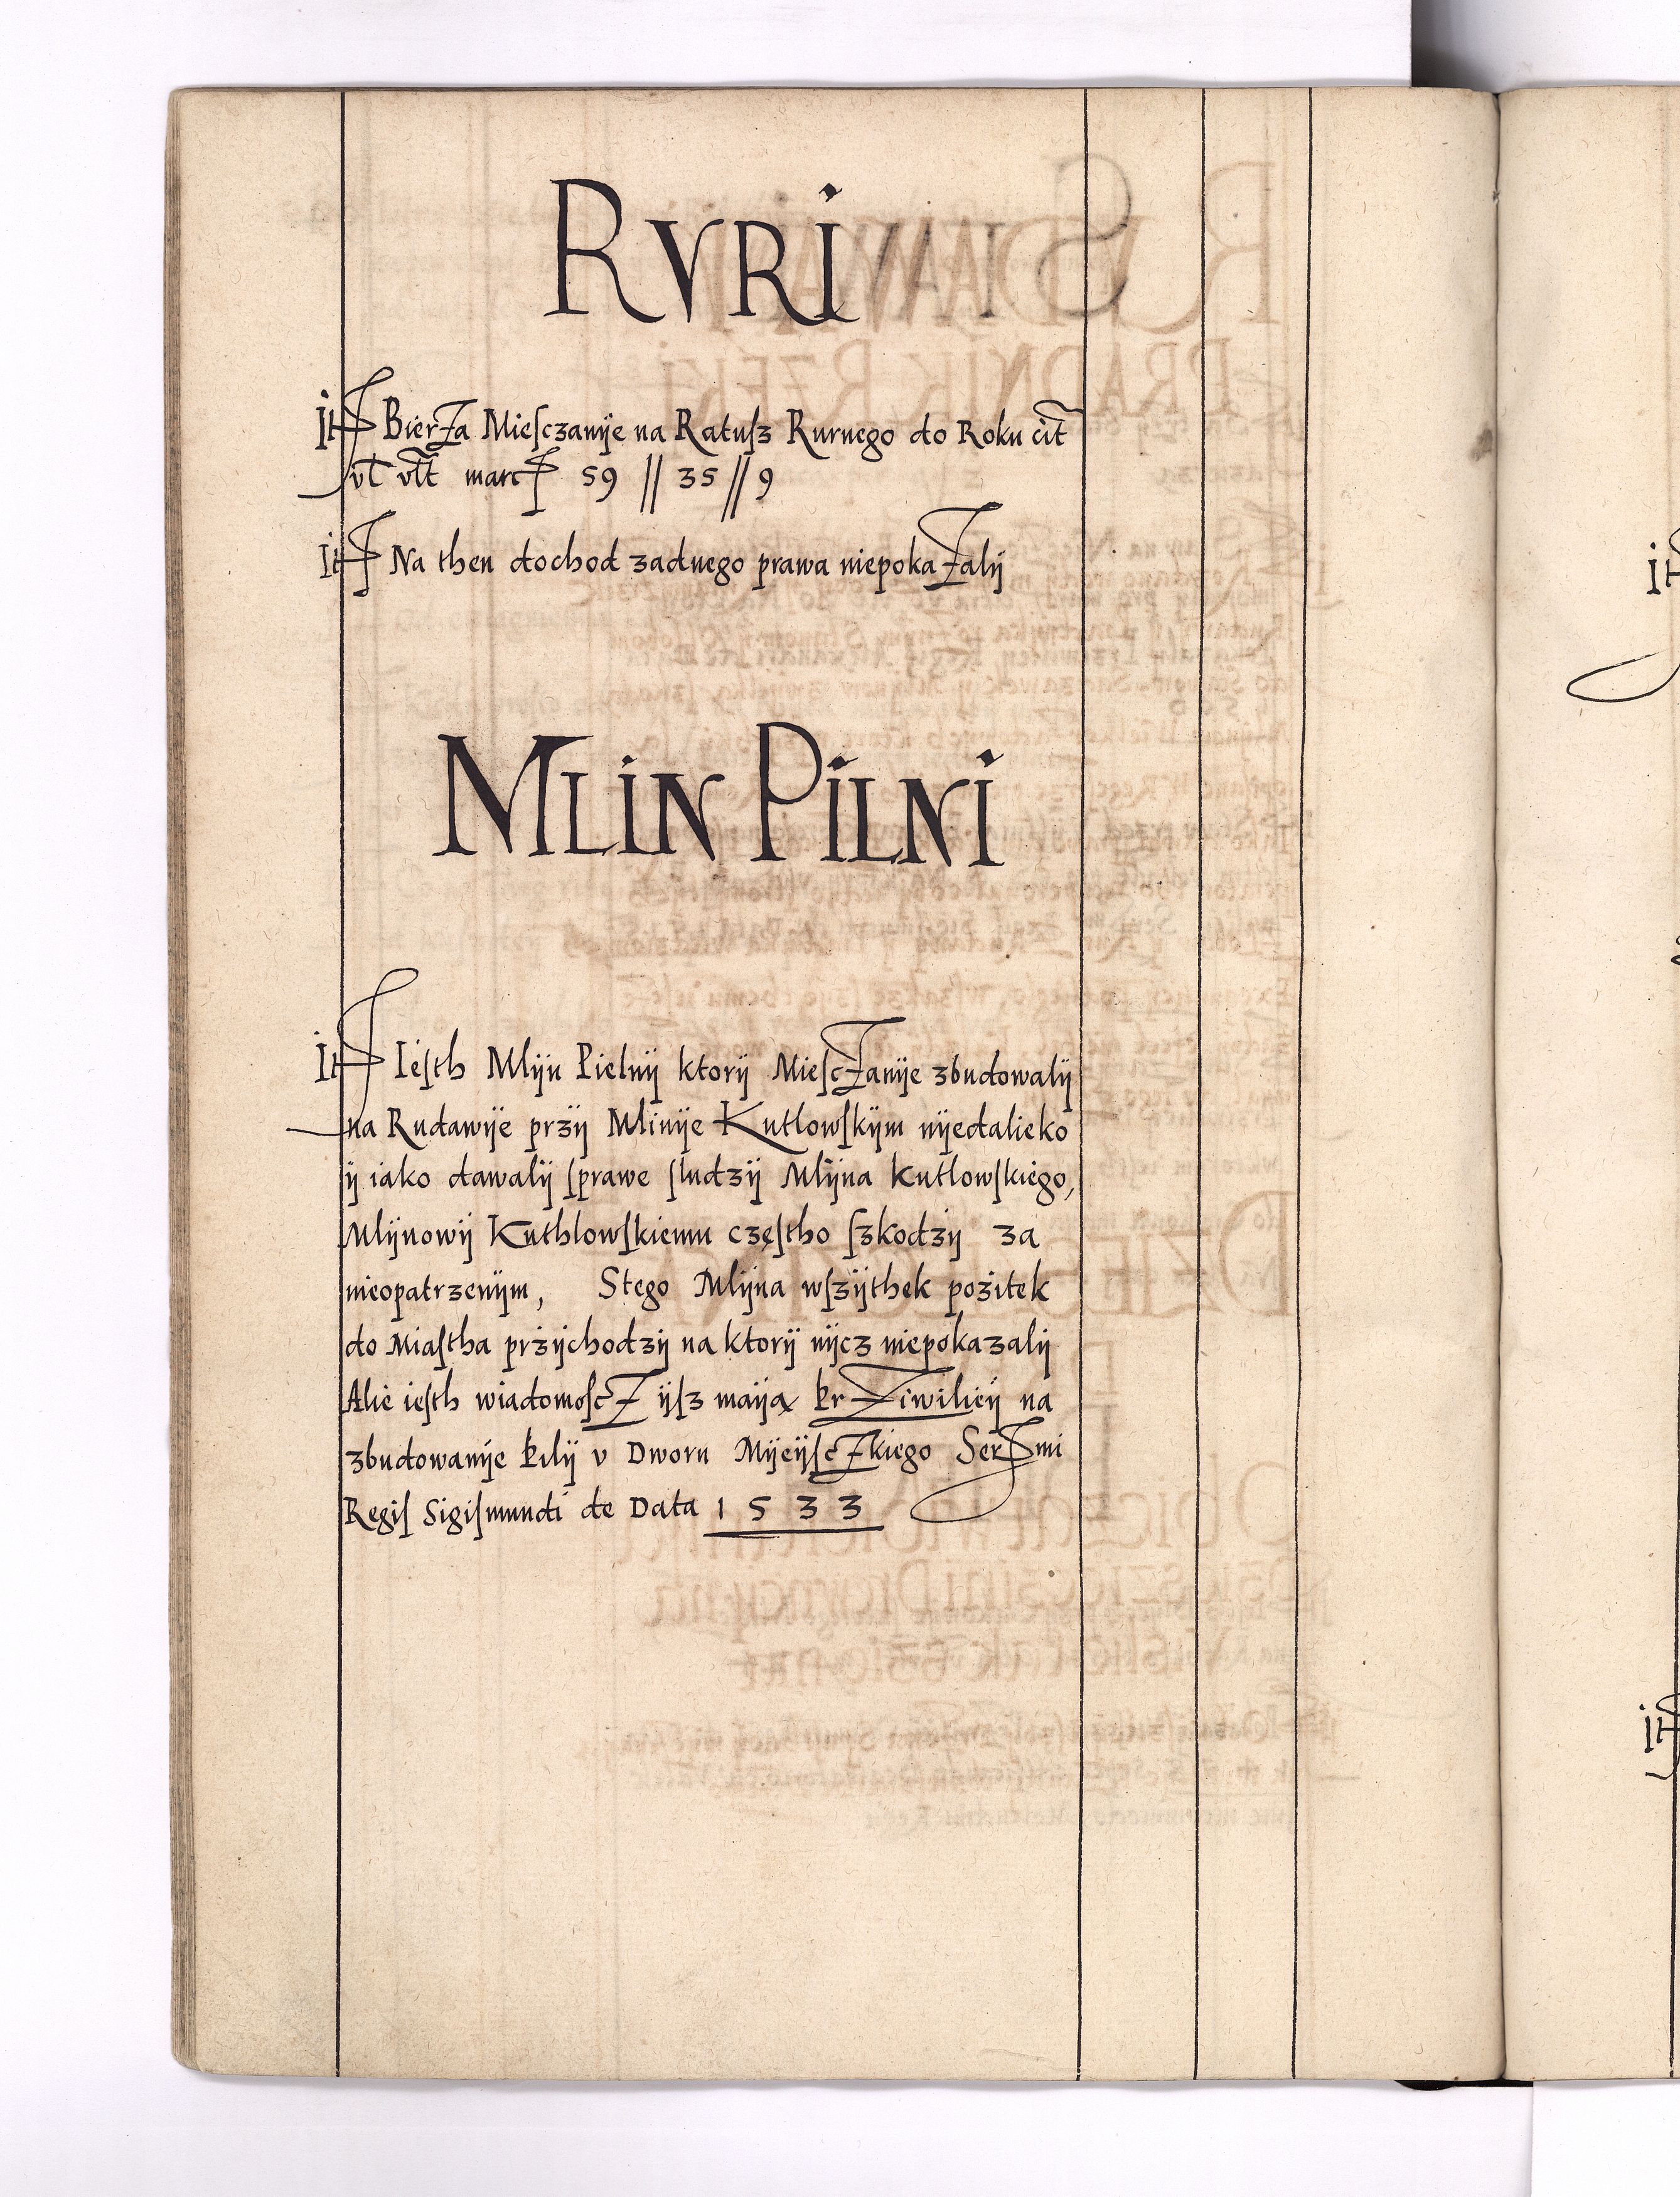 RVRI
It Bierza Mieſczanÿe na Ratuſz Rurnego do Roku cit
vt vlt marc 59 // 35 // 9
It Na then dochod zadnego prawa niepokazalÿ
MLIN PILNI
It Ieſth Mlÿn Pielnÿ ktorÿ Mieſczanÿe zbudowalÿ
na Rudawÿe przÿ Mlinÿe Kutlowſkÿm nÿedalieko
ÿ iako dawalÿ ſprawe ſludzÿ Mlÿna Kutlowſkiego,
Mlÿnowÿ Kuthlowſkiemu częſtho ſzkodzÿ za
nieopatrzenÿm, Stego Mlÿna wſzÿthek pożitek
do Miaſtha przÿchodzÿ na ktorÿ nÿcz niepokazalÿ
Alie ieſth wiadomoſcz ÿſz maÿą przÿwilieÿ na
zbudowanÿe Pilÿ v Dworu Mÿeÿſczkiego Sermi
Regiſ Sigiſmundi de Data 1533